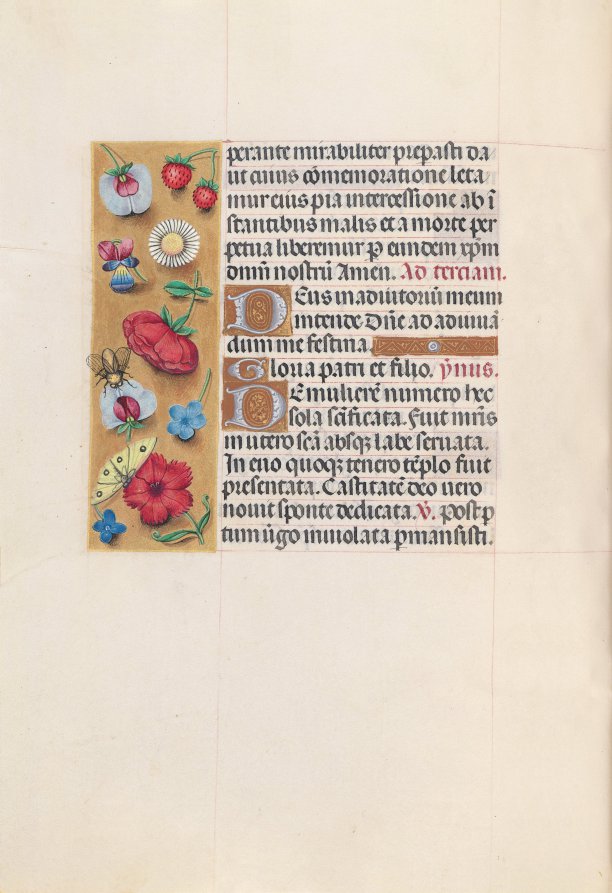 perante mirabiliter preparasti da
ut cuius cõmemoratione leta
mur eius pia intercessione ab ĩ
stantibus malis et a morte per
petua liberemur p̱ eundem xp̃m
dnm̃ nostrũ Amen. Ad terciam.
Deus in adiutoriũ meum
intende Dñe ad adiuuã
dum me festina
Gloria patri et filio. ỹnus.
De muliere numero hec
sola scĩficata. Fuit mr̃is
in utero scã absqꝫ labe seruata.
In euo quoqꝫ tenero tẽplo fuit
presentata. Castitatẽ deo uero
nouit sponte dedicata. ℣. Post p
tum ũgo inuiolata pmansisti.